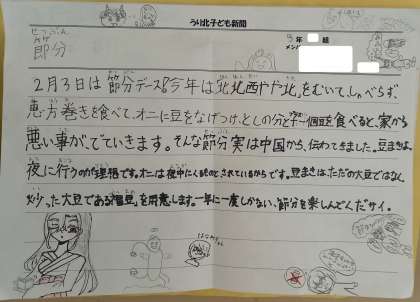 うり北子ども新聞
せつぶん
節分
年 組
メンバー
2月3日は節分デース!今年は「北北西やや北」をむいて、しゃべらず、
恵方巻きを食べて、オニに豆をなげつけ、としの分と 個豆を食べると、家から
悪い事が、でていきます。そんな節分実は中国から、伝わてきました。豆まきは、
夜に行うのが理想です。オニは夜中にんものとされているからです。豆まきは、ただの大豆ではなく
炒った大豆である「福豆」を用意します。一年に一度しかない、節分を楽しんでんだサイ。